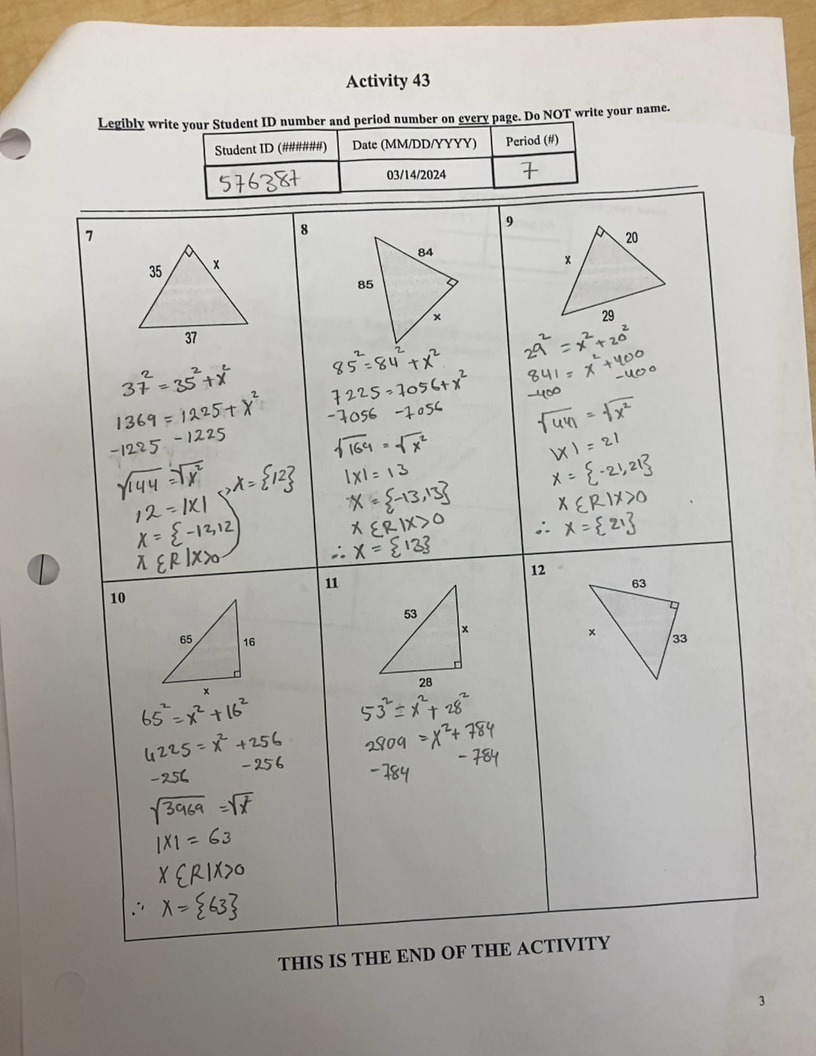 Activity 43
Legibly write your Student ID number and period number on every page. Do NOT write your name.
Student ID (######) Date (MM/DD/YYYY) Period (#)
576387 03/14/2024 7
7
35 x
37
37² = 35² + x²
1369 = 1225 + x²
-1225 -1225
√144 = √x²
12 = |x|
x = {-12,12
x ƐR|x>0
→ x = {12}
8
84
85
x
85² = 84² + x²
7225 = 7056 + x²
-7056 -7056
√169 = √x²
|x| = 13
x = {-13,13}
x ƐR|x>0
∴ x = {13}
9
20
x
29
29² = x² + 20²
841 = x² + 400
-400 -400
√441 = √x²
|x| = 21
x = {-21,21}
x ƐR|x>0
∴ x = {21}
10
65 16
x
65² = x² + 16²
4225 = x² + 256
-256 -256
√3969 = √x²
|x| = 63
x ƐR|x>0
∴ x = {63}
11
53
x
28
53² = x² + 28²
2809 = x² + 784
-784 -784
12
63
x 33
THIS IS THE END OF THE ACTIVITY
3